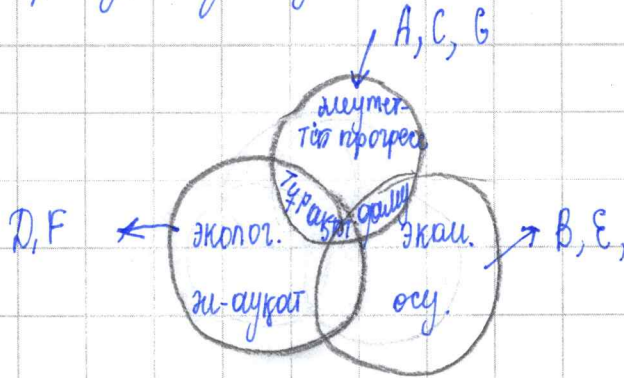 A, C, G
әлеумет-
тік прогрес
Тұрақты даму
D, F
эколог.
әл-ауқат
экон.
өсу.
B, E,